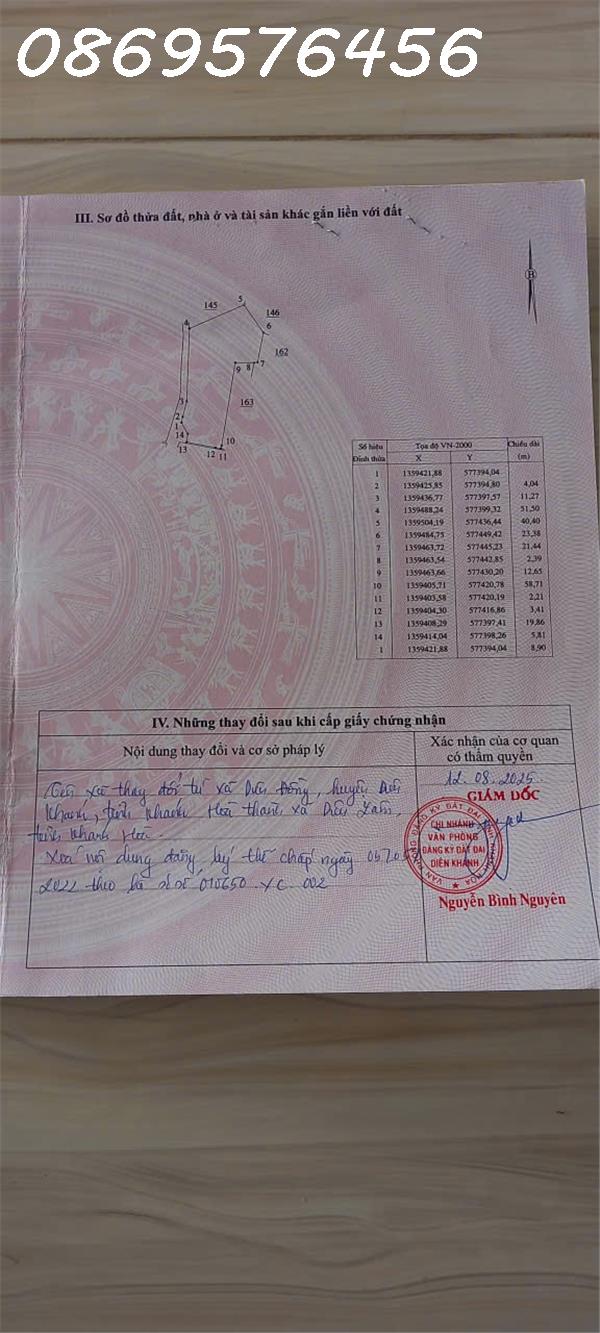 0869576456
III. Sơ đồ thửa đất, nhà ở và tài sản khác gắn liền với đất
B
145
5
146
6
4
162
9 8 7
163
3
2
1
14
13
10
12 11
Số hiệu Đỉnh thửa | Tọa độ VN-2000 | Chiều dài (m)
X Y
1 1359421,88 577394,04
2 1359425,85 577394,80 4,04
3 1359436,77 577397,57 11,27
4 1359488,24 577399,32 51,50
5 1359504,19 577436,44 40,40
6 1359484,75 577449,42 23,38
7 1359463,72 577445,23 21,44
8 1359463,54 577442,85 2,39
9 1359463,66 577430,20 12,65
10 1359405,71 577420,78 58,71
11 1359403,58 577420,19 2,21
12 1359404,30 577416,86 3,41
13 1359408,29 577397,41 19,86
14 1359414,04 577398,26 5,81
1 1359421,88 577394,04 8,90
IV. Những thay đổi sau khi cấp giấy chứng nhận
Nội dung thay đổi và cơ sở pháp lý
Xác nhận của cơ quan
có thẩm quyền
Tên xã thay đổi từ xã Diên Đồng, huyện Diên
Khánh, tỉnh Khánh Hoà thành xã Diên
tỉnh Khánh Hoà.
Xoá nội dung đăng ký thế chấp ngày
2022 theo hồ sơ số 010650.XC.002
12.08.2025
GIÁM ĐỐC
CHI NHÁNH
VĂN PHÒNG
ĐĂNG KÝ ĐẤT ĐAI
DIÊN KHÁNH
Nguyễn Bình Nguyên